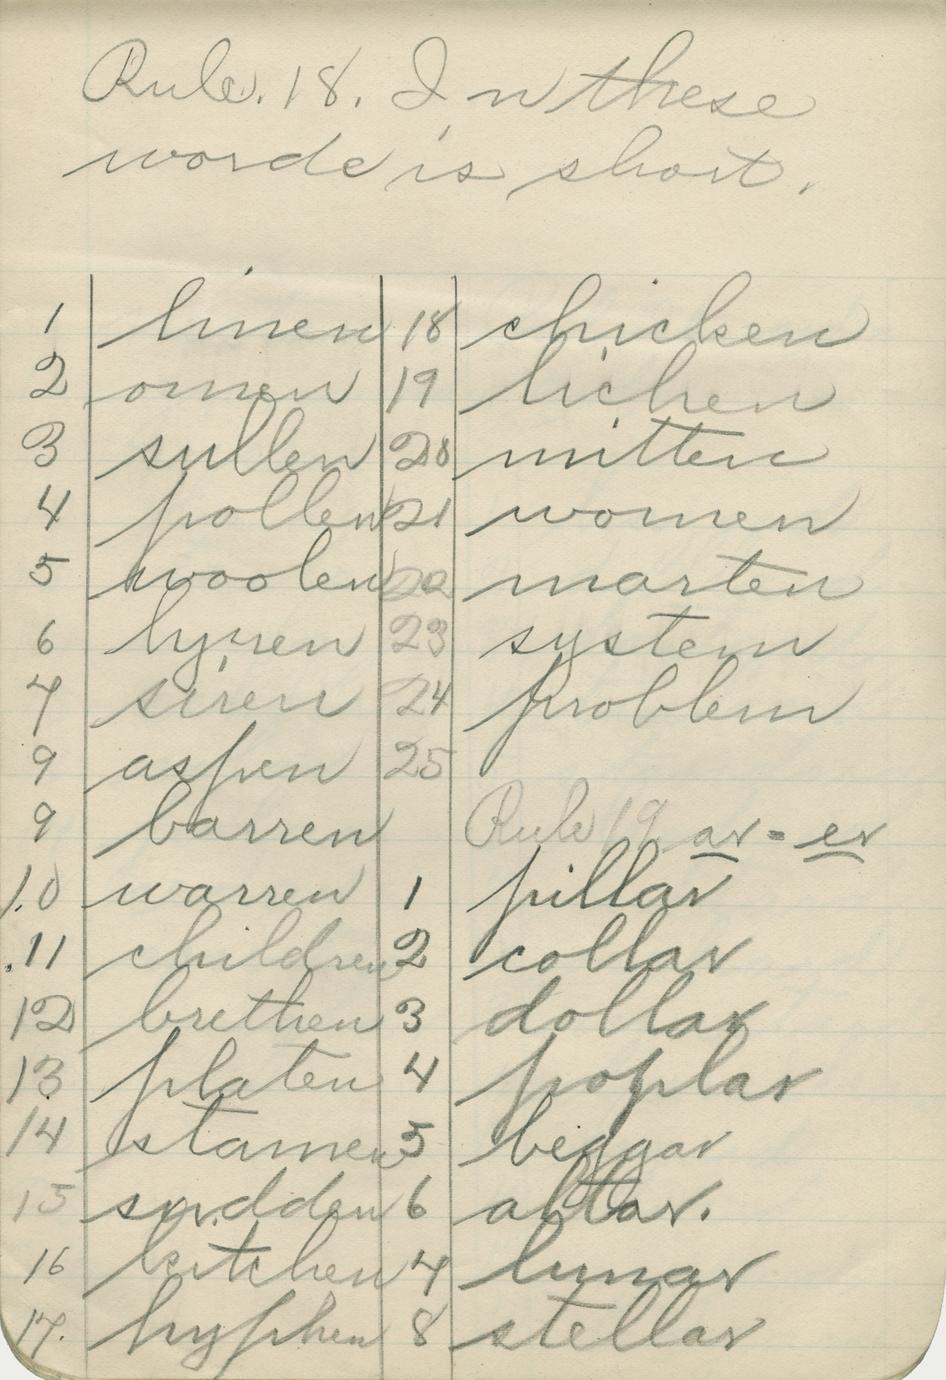 Rule. 18. In these
words is short.
1 linen
2 omen
3 sullen
4 pollen
5 woolen
6
7 siren
9 aspen
9 barren
10 warren
11 children
12 brethen
13 platen
14 stamen
15 sudden
16 kitchen
17. hyphen
18 chicken
19 lichen
20 mitten
21 women
22 marten
23 system
24 problem
25
Rule 19 ar - er
1 pillar
2 collar
3 dollar
4 poplar
5 beggar
6 altar.
7 lunar
8 stellar